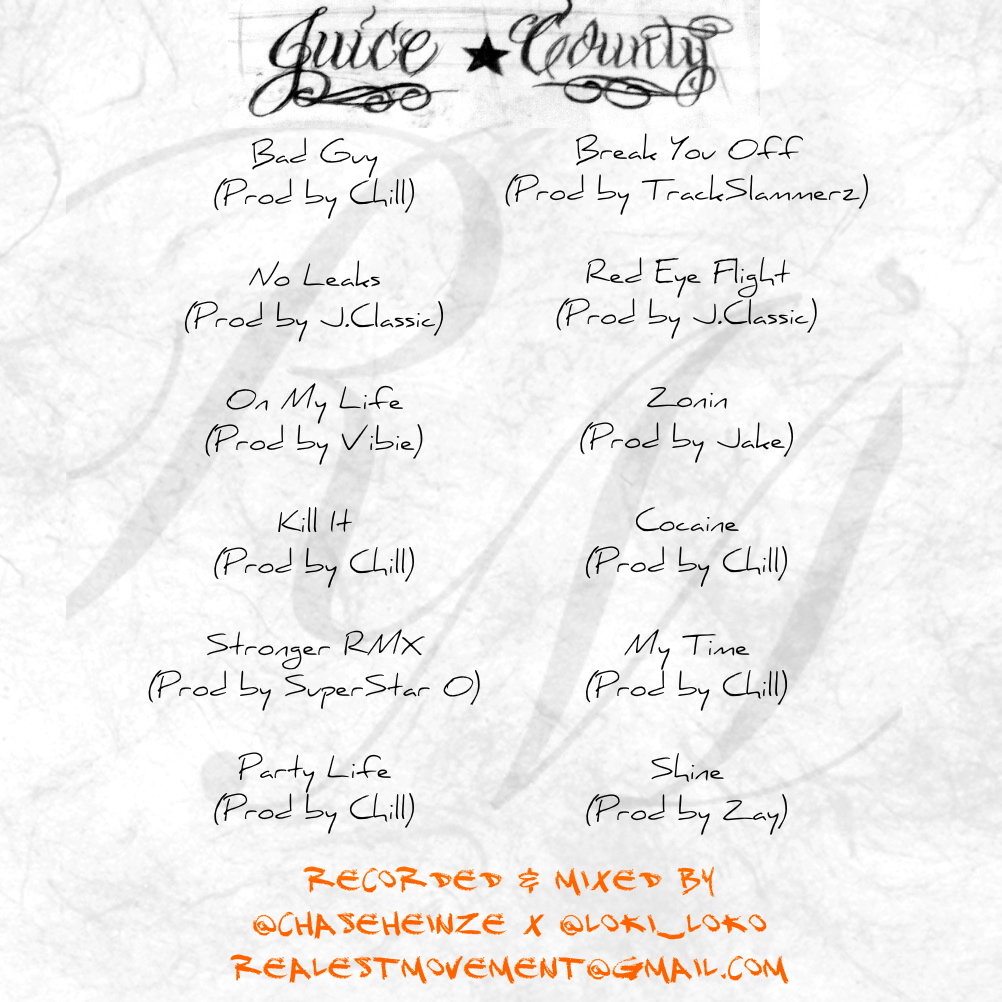 Juice ★ County
Bad Guy
(Prod by Chill)
No Leaks
(Prod by J.Classic)
On My Life
(Prod by Vibie)
Kill It
(Prod by Chill)
Stronger RMX
(Prod by SuperStar O)
Party Life
(Prod by Chill)
Break You Off
(Prod by TrackSlammerz)
Red Eye Flight
(Prod by J.Classic)
Zonin
(Prod by Jake)
Cocaine
(Prod by Chill)
My Time
(Prod by Chill)
Shine
(Prod by Zay)
RECORDED & MIXED BY
@CHASEHEINZE X @LOKI_LOKO
REALESTMOVEMENT@GMAIL.COM
RM